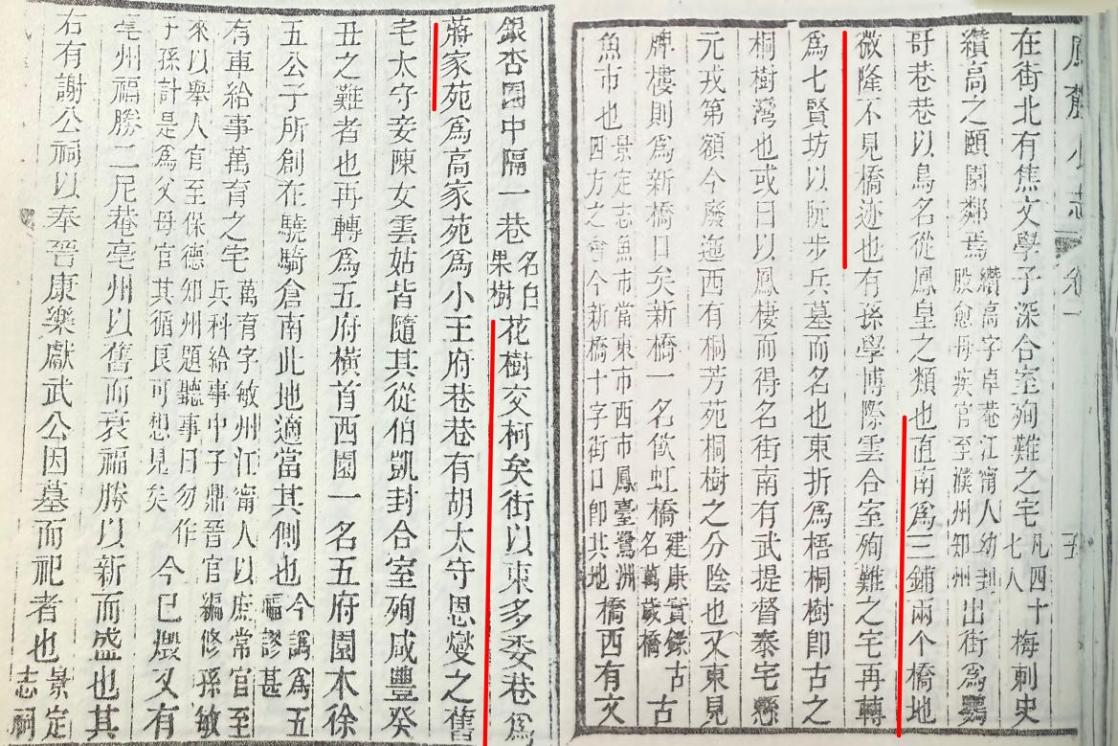 鳳麓小志 卷一 五
在街北有焦文學子深合室殉難之宅凡四十七人梅刺史
纘高之頤園鄰焉纘高字卓菴江甯人幼刲股愈母疾官至濮州知州出街為鸚
哥巷巷以鳥名從鳳皇之類也直南為三鋪兩个橋地
微隆不見橋迹也有孫學博際雲合室殉難之宅再轉
為七賢坊以阮步兵墓而名也東折為梧桐樹卽古之
桐樹灣也或曰以鳳棲而得名街南有武提督泰宅懸
元戎第額今廢迤西有桐芳苑桐樹之分陰也又東見
牌樓則為新橋口矣新橋一名飲虹橋建康實錄古名萬歲橋古
魚市也景定志魚市當東市西市鳳臺鷺洲四方之會今新橋十字街口卽其地橋西有文
銀杏園中隔一巷名白果樹花樹交柯矣街以東多委巷爲
蔣家苑爲高家苑爲小王府巷巷有胡太守恩燮之舊
宅太守妾陳女雲姑皆隨其從伯凱封合室殉咸豐癸
丑之難者也再轉爲五府橫首西園一名五府園本徐
五公子所創在驍騎倉南此地適當其側也今譌爲五福謬甚
有車給事萬育之宅萬育字敏州江甯人以庶常官至兵科給事中子鼎晉官編修孫敏
來以舉人官至保德知州題聽事曰勿作子孫計是爲父母官其循良可想見矣今已燬又有
亳州福勝二尼菴亳州以舊而衰福勝以新而盛也其
右有謝公祠以奉晉康樂獻武公因墓而祀者也景定志祠